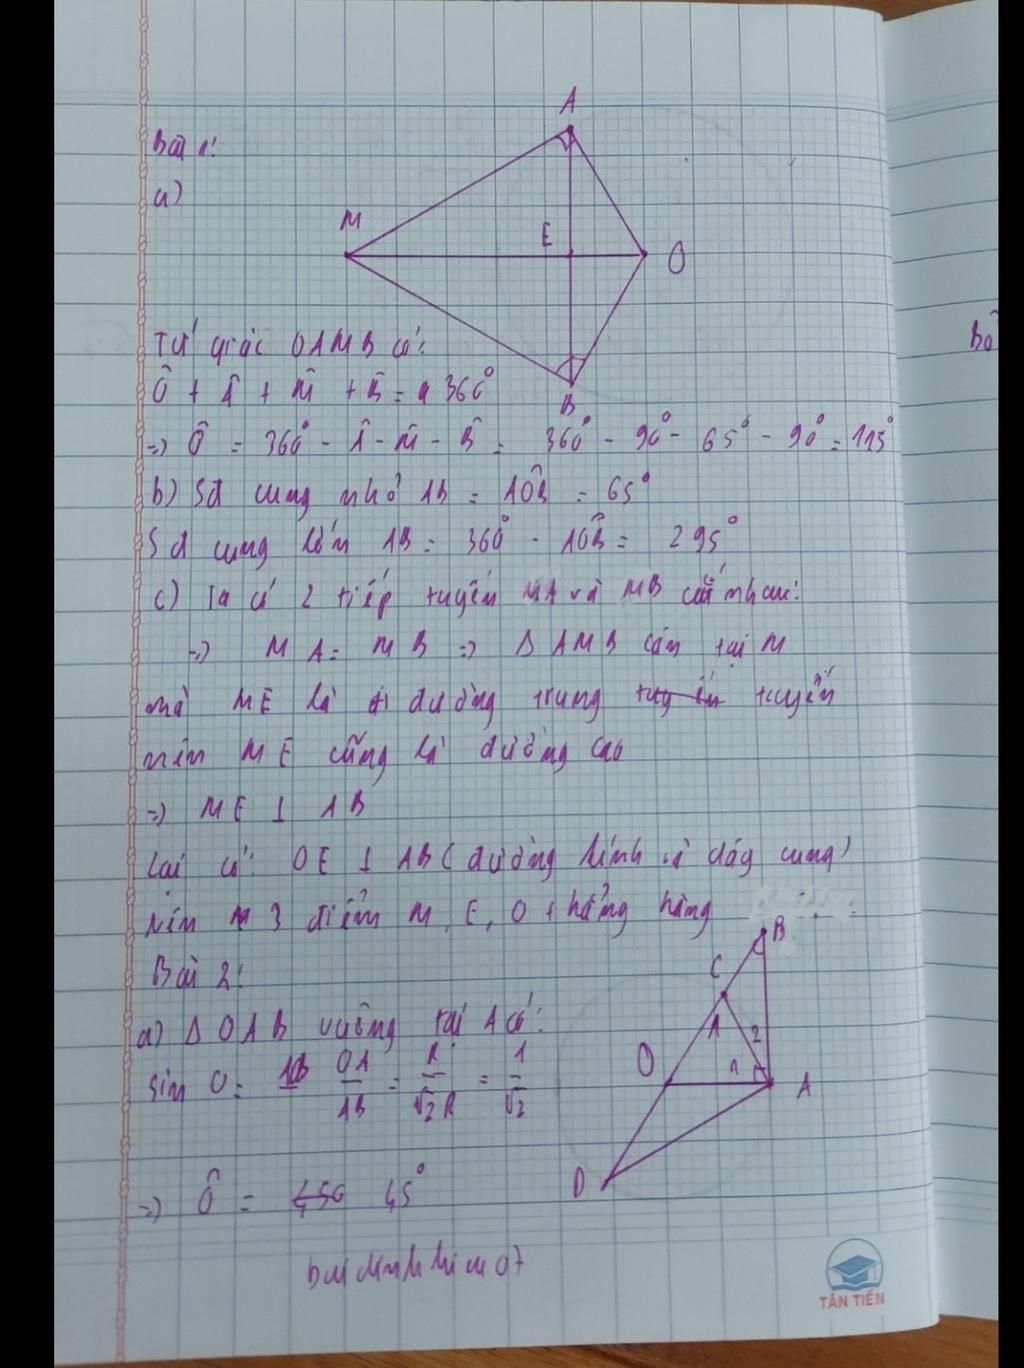 Bài 1:
a)
A
M
E
O
B
Tứ giác OAMB có:
Ô + Â + M̂ + B̂ = 360°
=) Ô = 360° - Â - M̂ - B̂ = 360° - 90° - 65° - 90° = 115°
b) Sđ cung nhỏ AB = AÔB = 65°
Sđ cung lớn AB = 360° - AÔB = 295°
c) Ta có 2 tiếp tuyến MA và MB cắt nhau:
=) MA = MB =) Δ AMB cân tại M
mà ME là đường trung tuyến
nên ME cũng là đường cao
=) ME ⊥ AB
Lại có: OE ⊥ AB (đường kính và dây cung)
Nên 3 điểm M, E, O thẳng hàng
Bài 2:
a) Δ OAB vuông tại A có:
sin O = OA/AB = R/√2R = 1/√2
=) Ô = 45°
B
C
1
2
O
1
A
D
TÂN TIẾN
bo